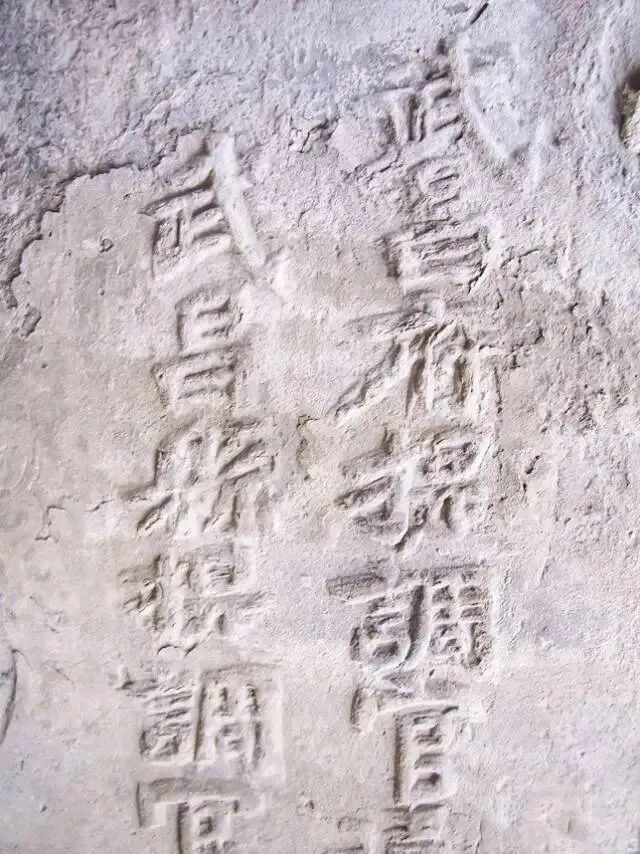 武昌府提調官
武昌縣提調官